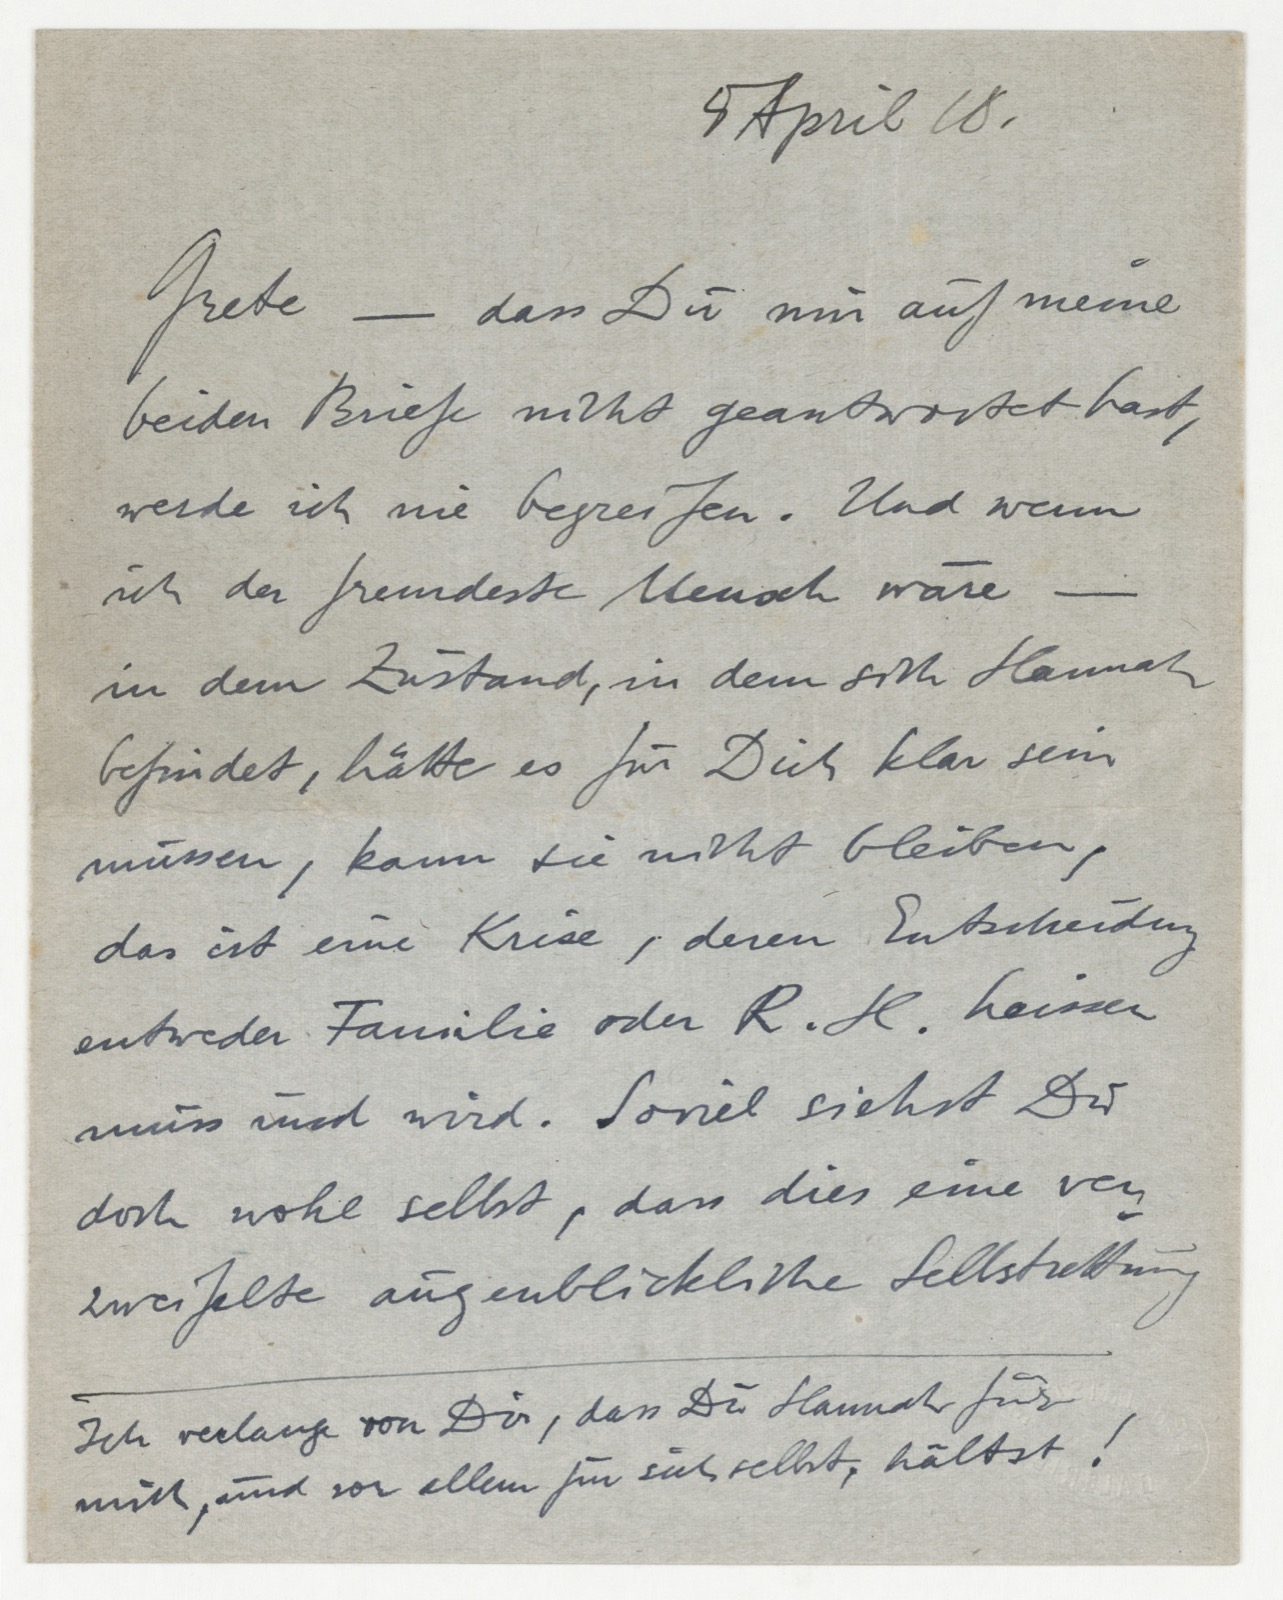 5 April 18.
Grete — dass Du mir auf meine
beiden Briefe nicht geantwortet hast,
werde ich nie begreifen. Und wenn
ich der fremdeste Mensch wäre —
in dem Zustand, in dem sich Hannah
befindet, hätte es für Dich klar sein
müssen, kann sie nicht bleiben,
das ist eine Krise, deren Entscheidung
entweder Familie oder R. H. heissen
muss und wird. Soviel siehst Du
doch wohl selbst, dass dies eine ver-
zweifelte augenblickliche Selbstrettung
Ich verlange von Dir, dass Du Hannah für
mich, und vor allem für sich selbst, hältst!